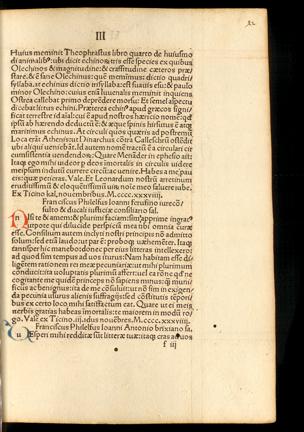 III
Huius meminit Theophrastus libro quarto de
di animalibus: ubi dicit echinotris esse species ex quibus
Olechinos & magnitudine: & crassitudine cæteros præ
stare. & sane Olechinus: quē meminimus: dictio quadri
syllaba, at echinus dictio trisyllaba: est
minor Olechino: cuius etiā Iuuenalis meminit inquiens
Ostrea callebat primo deprēdere morsu: Et semel aspecti
dicebat litus echini. Præterea echinus apud græcos signi
ficat terrestre
ipsum ab hærendo deductum: & æque spinis hirsutus ē atque
maritimus echinus. At circuli quos quæris ad postremū
Loca erāt Athenis: ut Dinarchus cōtra Calleschrū ostēdit
ubi aliqui veniebāt. Id autem nomē tractū ē a circulari cir
cumsistentia vendendorum. Quare Menāder in ephesio ait:
Itaque ego mihi uidere per deos īmortalis in circulis uidere
meipsum indutū currere circū: ac venire. Habes a me pau
cis quæ petieras. Vale. Et Leonardum nostrū
eruditissimū & eloquētissimū uirū meo nomine saluere iube.
Ex Ticino kal. nouembribus. M.cccc.xxxviiii.
Franciscus Philelfus Ioanni ferufino iurecō
sulto & ducali iuscriæ consiliario sal.
& te amem: & plurimi faciam: sim apprime ingratus
turpe qui dilucide perspiciā mea tibi omnia curæ
esse. Consilium autem inclyti nostri principis nō admitto
solum: sed etiā laudo: ut par ē: proboque uehemēter. Itaque
transferri hic manebo donec per eius litteras intellexero
ad quod sim tempus ad uos iturus: Nam habitam esse di
ligentē rationem rei meæ pecuniariæ: ut mihi plurimum
conducit: ita uoluptatis plurimū affert: uel ea rōne quod ne
cogitante me quidē princeps nō sapiens minus: quam muni
ficus: ac benignus: ita de me cōsuluit: ut nō sim in exigen
da pecunia usurus alienis suffragiis: sed cōstitutis tēpori
bus ex certo loco mihi satisfactum eat. Quare ut ei meis
uerbis gratias habeas īmortalis: te maiorem in modū ro
go. Vale ex Ticino. iii. idus nouēbres. M.cccc.xxxviiii.
Franciscus Philelfus Ioanni Antonio brixiano sa.
u Esperi mihi redditæ sūt litteræ tuæ: itaque cras ad uos
f iii